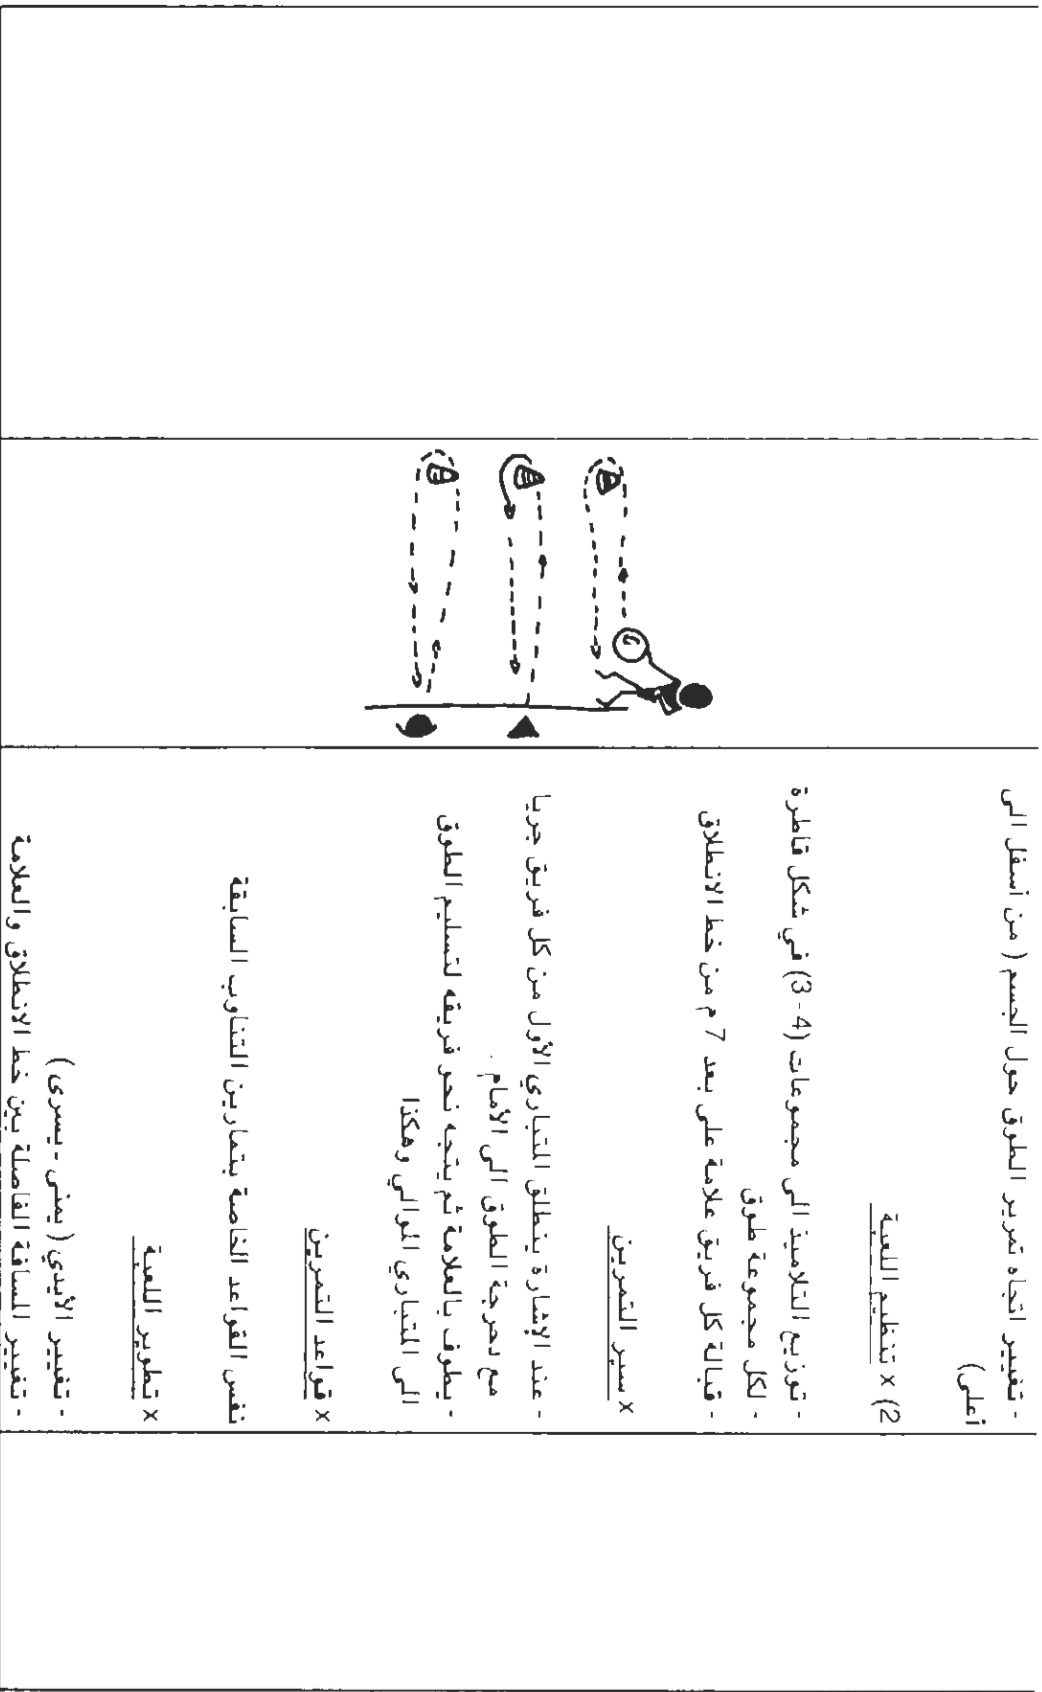 - تغيير اتجاه تمرير الطوق حول الجسم ( من أسفل الى
أعلى)
2) x تنظيم اللعبة
- توزيع التلاميذ الى مجموعات (4 - 3) في شكل قاطرة
- لكل مجموعة طوق
- قبالة كل فريق علامة على بعد 7 م من خط الانطلاق
x سير التمرين
- عند الإشارة ينطلق المتباري الأول من كل فريق جريا
مع دحرجة الطوق الى الأمام .
- يطوف بالعلامة ثم يتجه نحو فريقه لتسليم الطوق
الى المتباري الموالي وهكذا
x قواعد التمرين
نفس القواعد الخاصة بتمارين التناوب السابقة
x تطوير اللعبة
- تغيير الأيدي ( يمنى - يسرى )
- تغيير المسافة الفاصلة بين خط الانطلاق والعلامة